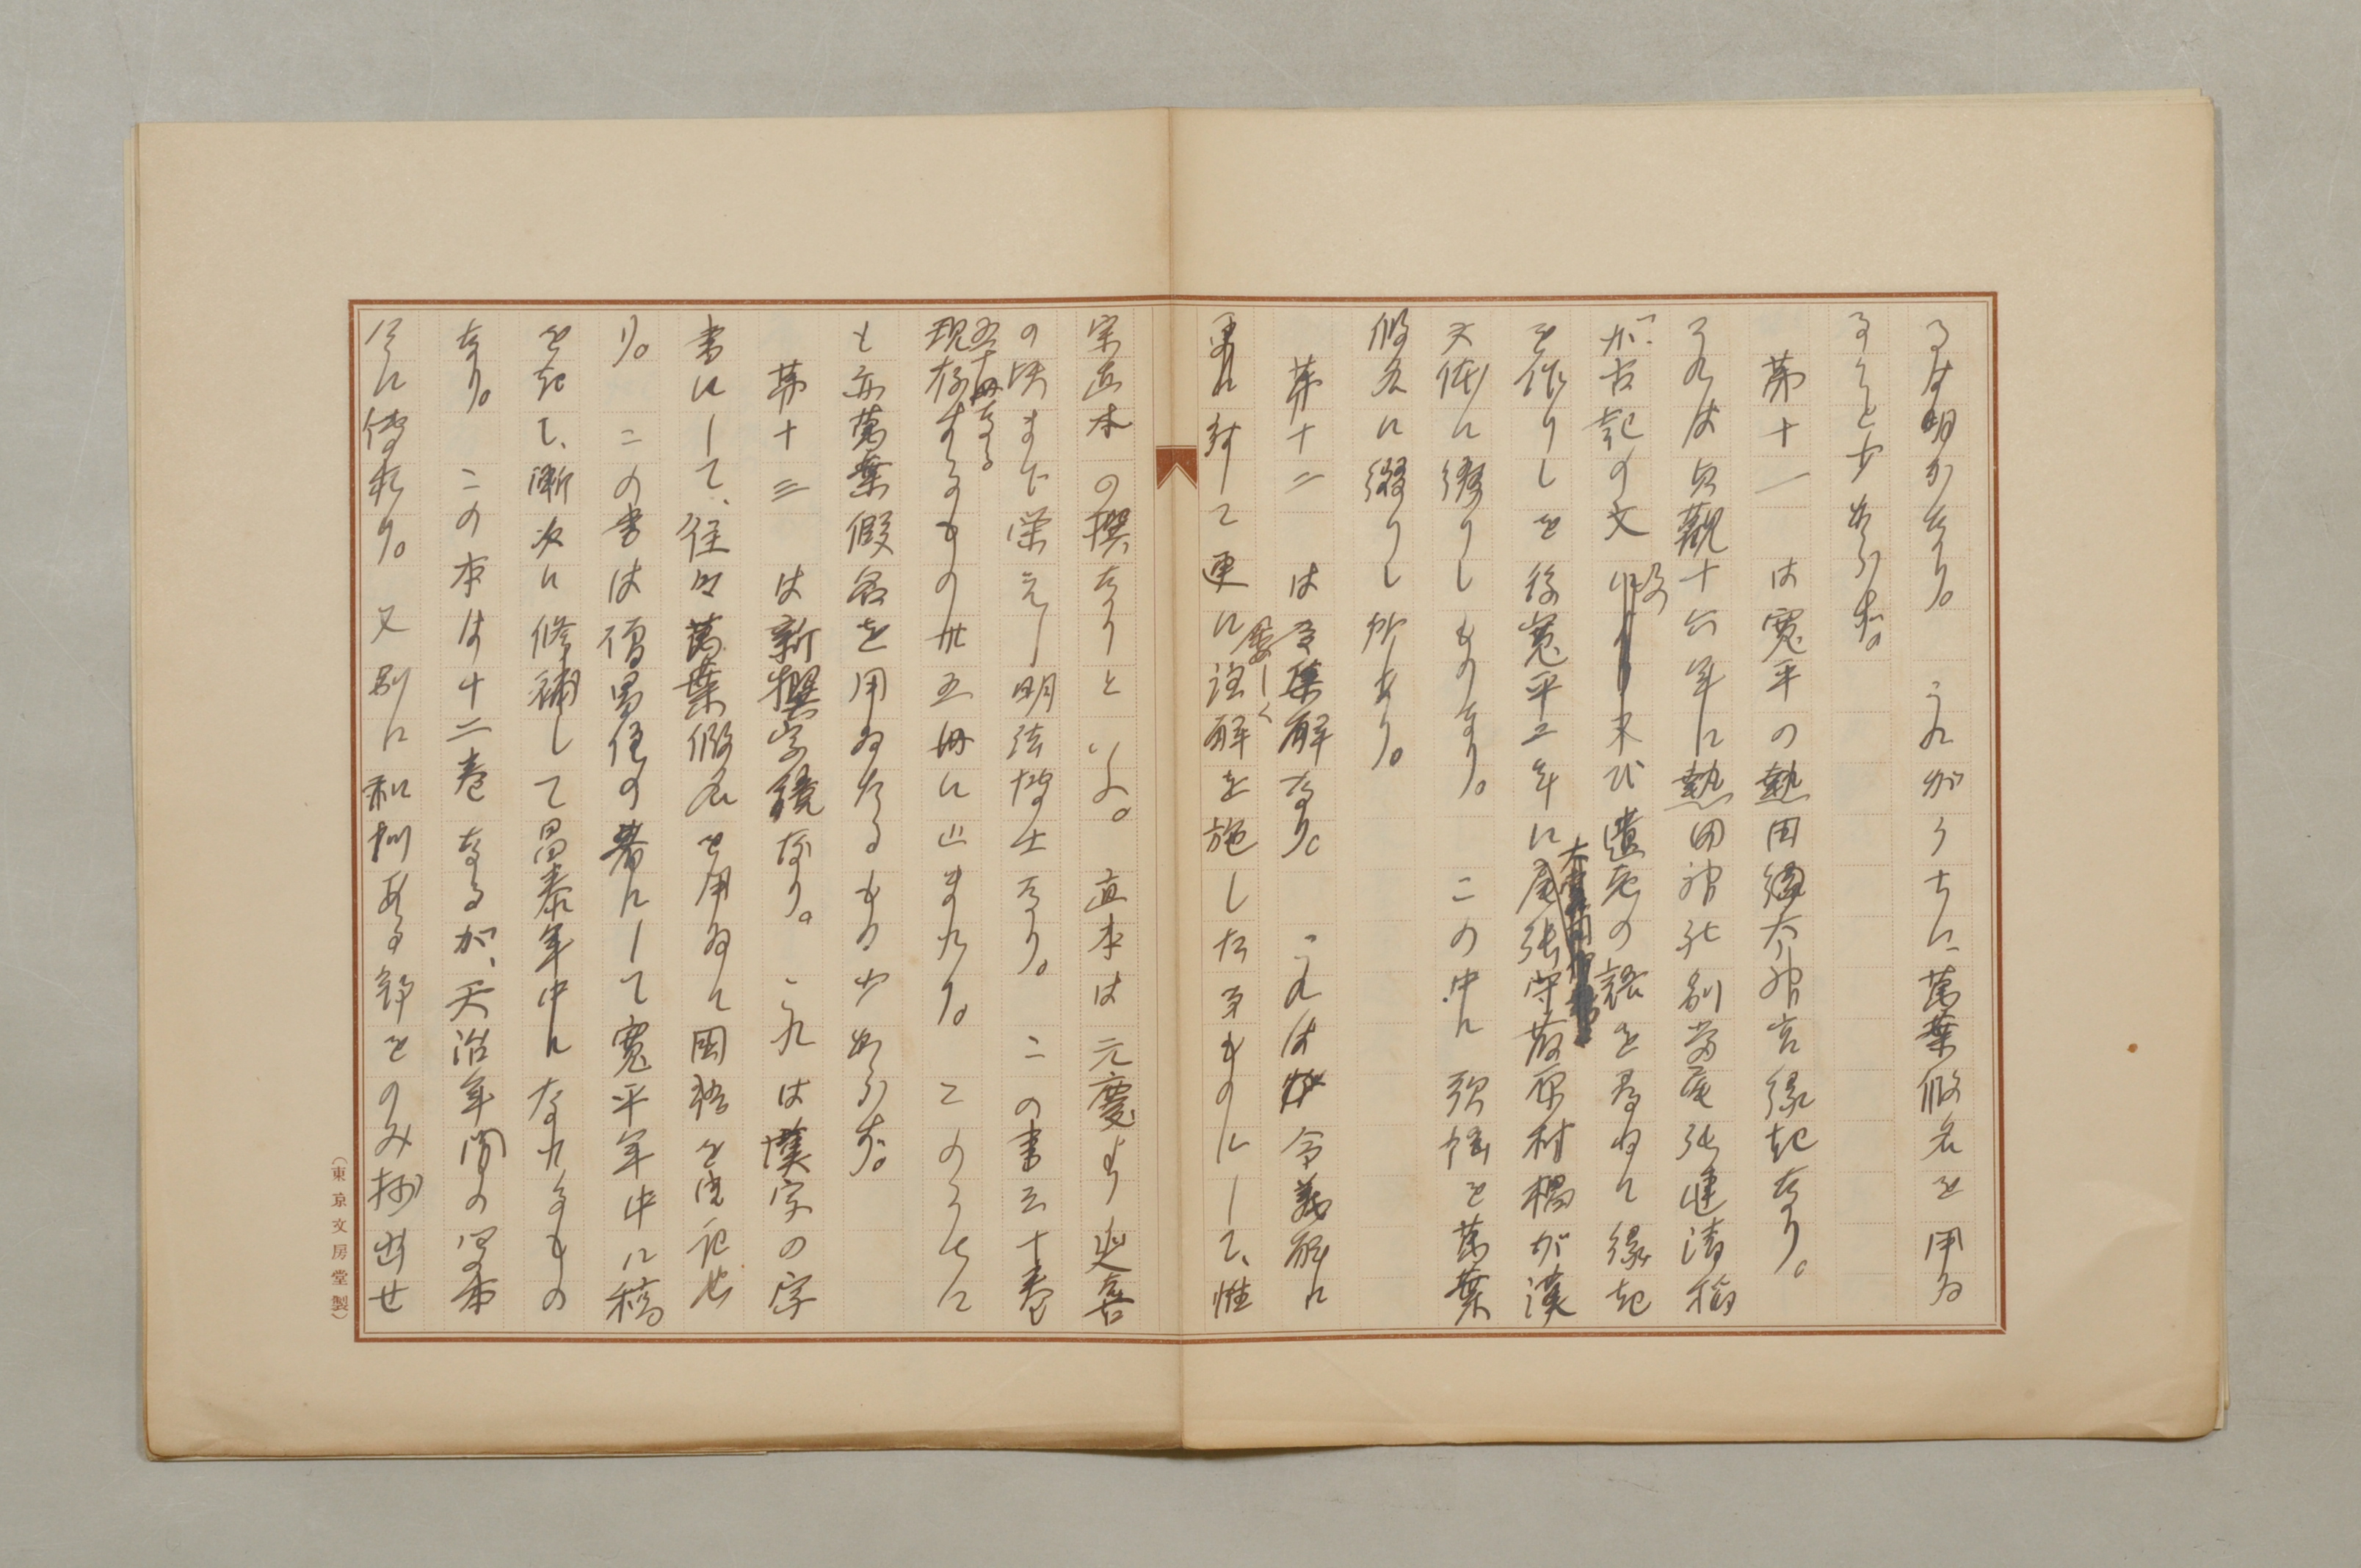 るは明かなり。これがうちに、萬葉假名を用ゐ
ること少からず。
第十一は寛平の熱田縁大神宮縁起なり。
これは貞觀十六年に熱田神社別當尾張連清稻
が古記の文及び遺老の語を尋ねて縁起
を作りしを後寛平二年に尾張守藤原村椙が漢
文体に綴りしものなり。この中に歌謡を萬葉
假名に綴りし所あり。
第十二は令集解なり。これは令義解に
更に對して更に委しく注解を施したるものにして、惟
宗直本の撰なりといふ。直本は元慶より延喜
の頃まで榮えし明法博士なり。この書三十卷
現存するもの卅五冊に止まれり。このうちに
も亦萬葉假名を用ゐたるもの少からず。
第十三は新撰字鏡なり。これは漢字の字
書にして、往々萬葉假名を用ゐて國語を注記せ
り。この書は僧昌住の著にして寛平年中に稿
を起して、漸次に修補して昌泰年中になれるもの
なり。この本は十二卷なるが、天治年間の寫本
今に傳れり。又別に和訓ある部をのみ抄出せ
（東京文房堂製）